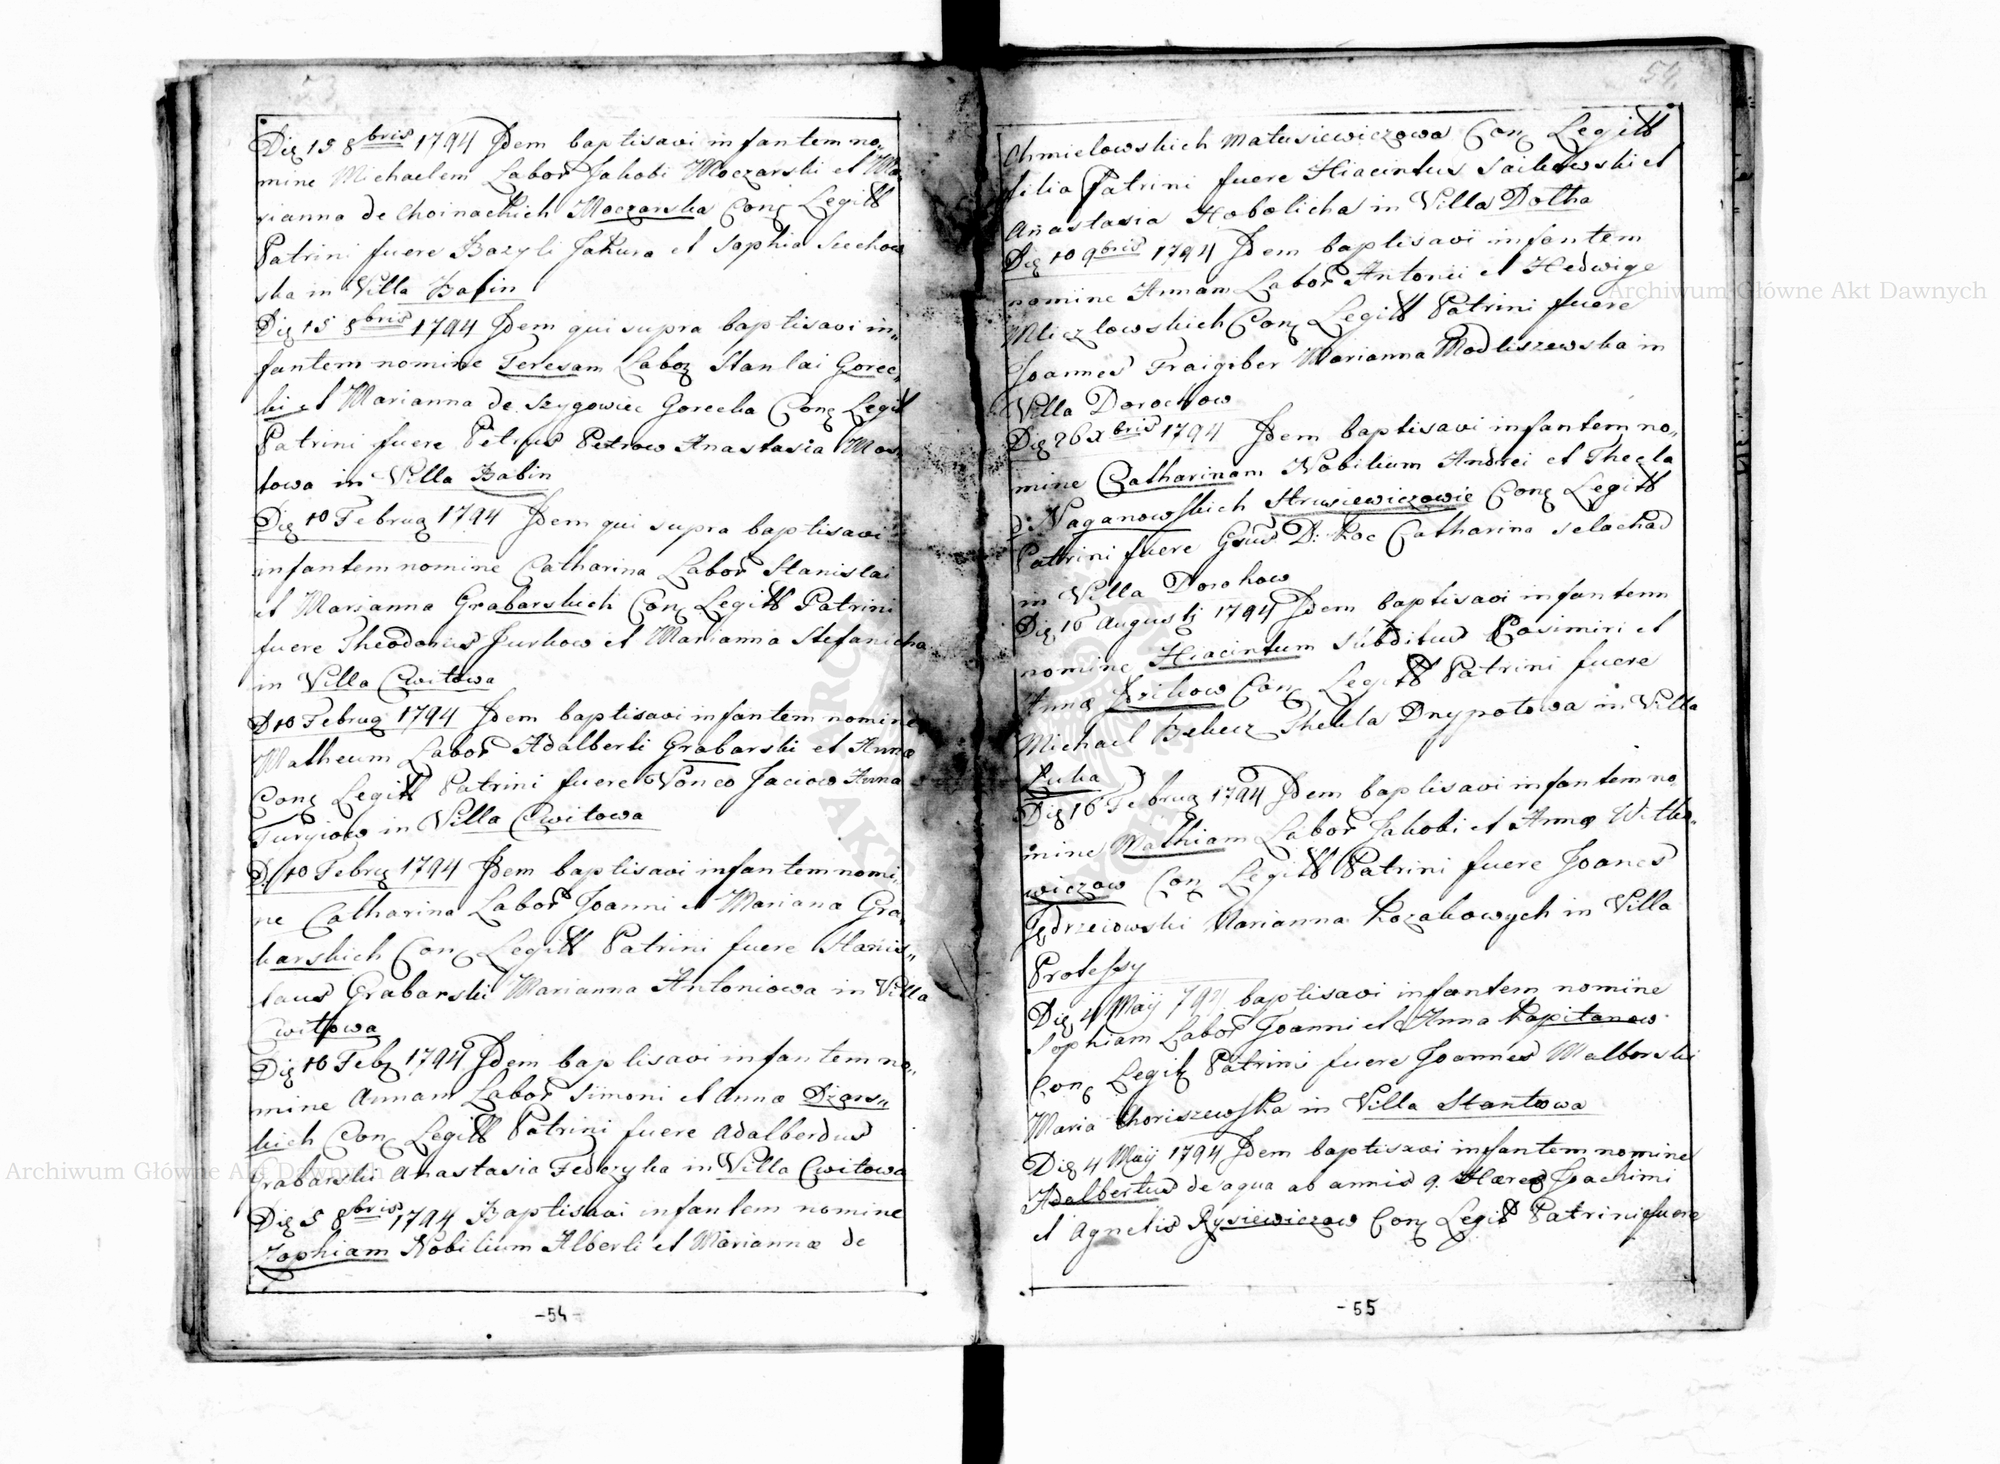 53
Die 15 8bris 1794 Idem baptisavi infantem no„
mine Michaelem Labor Jakobi Moczarski et Ma
rianna de Choinackich Moczarska Conj Legitt
Patrini fuere Bazyli Jakura et Sophia Suchow
ska in Villa Babin
Die 15 8bris 1794 Idem qui supra baptisavi in„
fantem nomine Teresam Labor Stanlai Gorec„
ki et Marianna de Szygowiec Gorecka Conj Legit
Patrini fuere Petrus Petrow Anastasia Mos„
towa in Villa Babin
Die 10 Februa 1794 Idem qui supra baptisavi
infantem nomine Catharina Labor Stanislai
et Marianna Grabarskich Conj Legitt Patrini
fuere Theodorus Jurkow et Marianna Stefanicha
in Villa Cwitowa
D 10 Februa 1794 Idem baptisavi infantem nomine
Matheum Labor Adalberti Grabarski et Annæ
Conj Legitt Patrini fuere Vonco Jaciow Anna
in Villa Cwitowa
D. 10 Febru 1794 Idem baptisavi infantem nomi„
ne Catharina Labor Joanni et Mariana Gra„
barskich Conj Legitt Patrini fuere Stanis„
laus Grabarski Marianna Antoniowa in Villa
Cwitowa
Die 10 Feb 1794 Idem baptisavi infantem no„
mine Annam Labor Simoni et Annæ Dzars„
kich Conj Legitt Patrini fuere Adalberdus
Grabarski Anastasia Fedczyka in Villa Cwitowa
Die 5 8bris 1794 Baptisavi infantem nomine
Zophiam Nobilium Alberti et Mariannæ de
-54-
54
Chmielowskich Matusiewiczowa Conj Legitt
filia Patrini fuere Hiacintus Saikowski et
Anastasia Hobolicha in Villa Dolha
Die 10 9bris 1794 Idem baptisavi infantem
nomine Annam Labor Antonii et Hedwige
Mliczlowskich Conj Legitt Patrini fuere
Joannes Fraigiber Marianna Modliszewska in
Villa Dorochow
Die 26 Xbris 1794 Idem baptisavi infantem no„
mine Catharinam Nobilium Andrei et Thecla
d: Naganowskich Strusiewiczowie Conj Legitt
Patrini fuere Gsus D: Koc Catharina Selachad
in Villa Dorohow
Die 16 Augustj 1794 Idem baptisavi infantem
nomine Hiacintum Subditus Casimiri et
Anna Jrzikow Conj Legitt Patrini fuere
Michael Bekicz Thekla Dnypotowa in Villa
Luka
Die 16 Februa 1794 Idem baptisavi infantem no„
mine Mathiam Labor Jakobi et Annæ Witko„
wiczow Conj Legitt Patrini fuere Joanes
Jędrzeiowski Marianna Kozakowych in Villa
Protessy
Die 4 Maij 794 baptisavi infantem nomine
Sophiam Labor Joanni et Anna Kapitanow
Conj Legit Patrini fuere Joannes Malborski
Maria Choriszewska in Villa Stankowa
Die 4 Maij 1794 Idem baptisavi infantem nomine
Adalbertus de aqua ab annis 9. Hæres Joachimi
et Agnetis Rysiewiczow Conj Legit Patrini fuere
-55
Archiwum Główne Akt Dawnych
Archiwum Główne Akt Dawnych